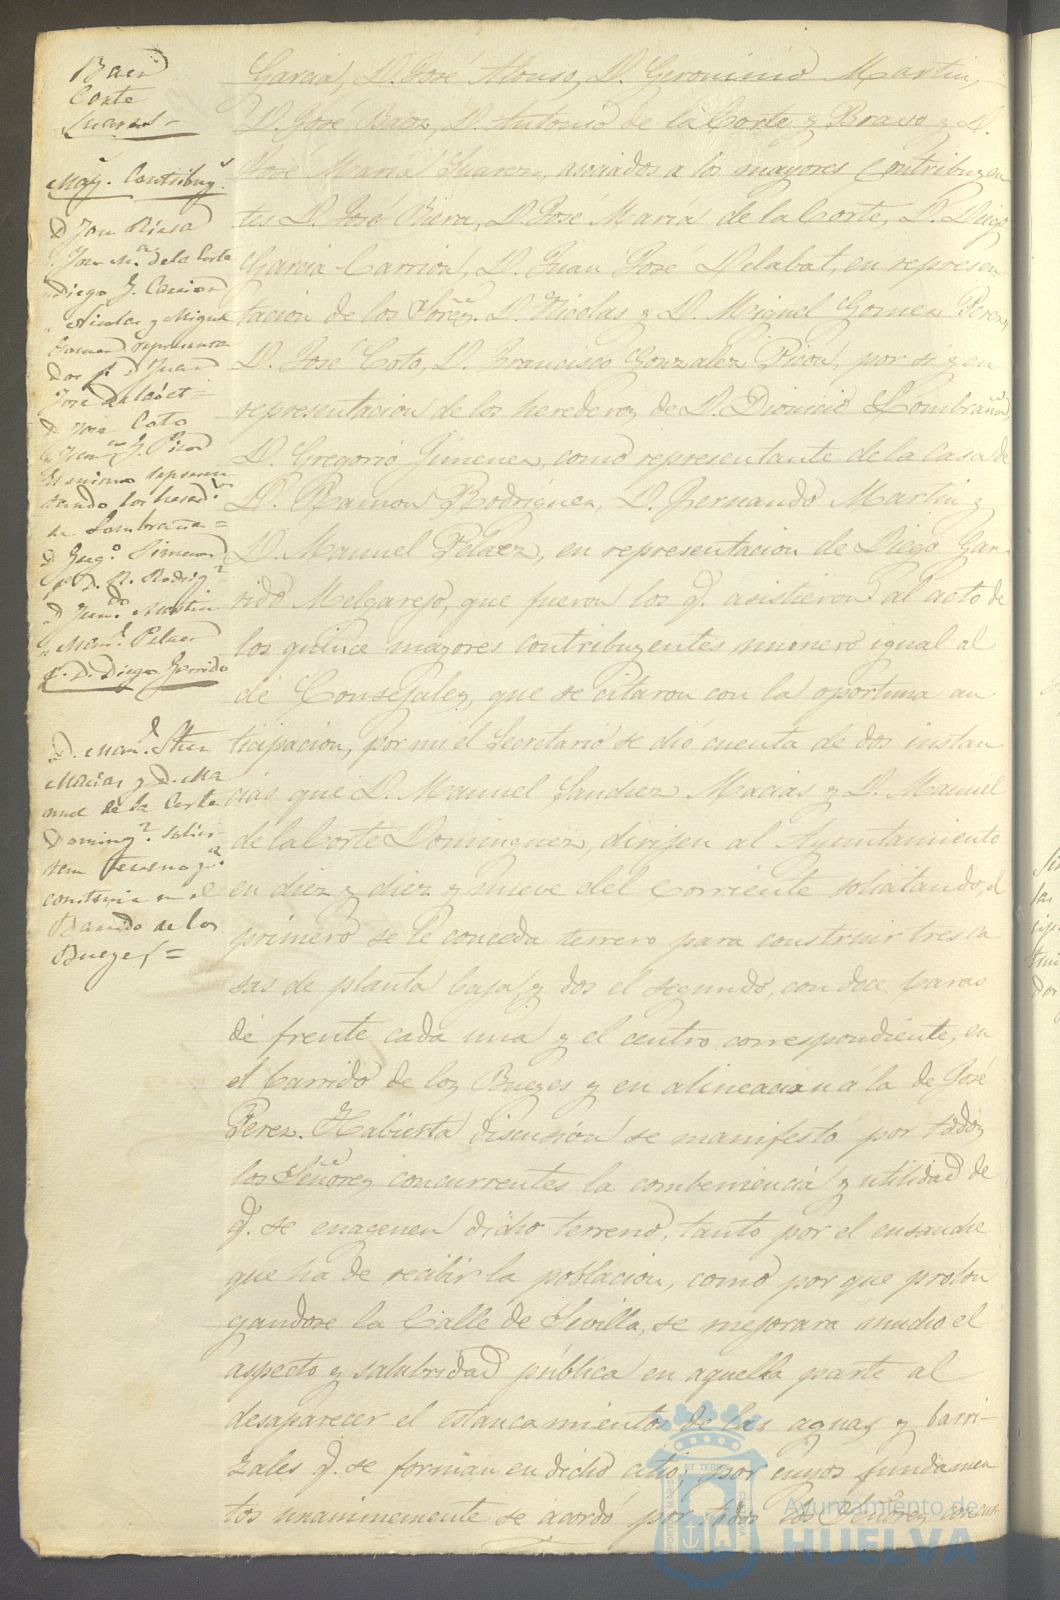 Baez
Corte
Suarez=
May.s Contribuy.s
D. Jose Riera
" Jose M.a de la Corte
" Diego G. Carrion
" Nicolas y Miguel
Gomez representa
dos p.r D. Juan
Jose Delabat=
D. Jose Coto
" Fran.co G. Picon
el mismo represen
tando los hered.s
de Lombraña=
D. Greg.o Jimenez
p.r D. R. Rodrig.z
D. Fern.do Martin
" Man.l Pelaez
p.r D. Diego Garrido
D. Man.l Schez
Macias y D. Ma
nuel de la Corte
Doming.z solici
tan terreno p.a
construir en el
Barrido de los
Bueyes=
Garcia, D. José Alonso, D. Geronimo Martin,
D. José Baez, D. Antonio de la Corte y Bravo y D.
José Maria Suarez, asociados a los mayores Contribuyen
tes D. José Riera, D. José Maria de la Corte, D. Diego
Garcia Carrion, D. Juan José Delabat, en represen
tacion de los Sres. D. Nicolas y D. Miguel Gomez Perez,
D. José Coto, D. Francisco Gonzalez Picon, por si y en
representacion de los herederos de D. Dionicio Lombraña,
D. Gregorio Jimenez, como representante de la Casa de
D. Ramon Rodriguez, D. Fernando Martin y
D. Manuel Pelaez, en representacion de Diego Gar-
rido Melgarejo, que fueron los q.e asistieron al acto de
los quince mayores contribuyentes numero igual al
de Consejales, que se citaron con la oportuna an
ticipacion, por mi el Secretario se dió cuenta de dos instan
cias que D. Manuel Sanchez Macias y D. Manuel
de la Corte Dominguez, dirijen al Ayuntamiento
en diez y diez y nueve del corriente solicitando, el
primero se le conceda terreno para construir tres ca
sas de planta baja y dos el segundo, con doce baras
de frente cada una y el centro correspondiente, en
el barrido de los Bueyes y en alineacion á la de José
Perez. Habierta discusion se manifestó por todos
los Señores concurrentes la combeniencia y utilidad de
q.e se enagenen dicho terreno, tanto por el ensanche
que ha de recibir la poblacion, como por que prolon
gandose la Calle de Sevilla, se mejorara mucho el
aspecto y salubridad pública en aquella parte al
desaparecer el estancamiento de las aguas y barri-
zales q.e se forman en dicho citio; por cuyos fundamen
tos unanimemente se acordó por todos los Señores concur
Ayuntamiento de
HUELVA